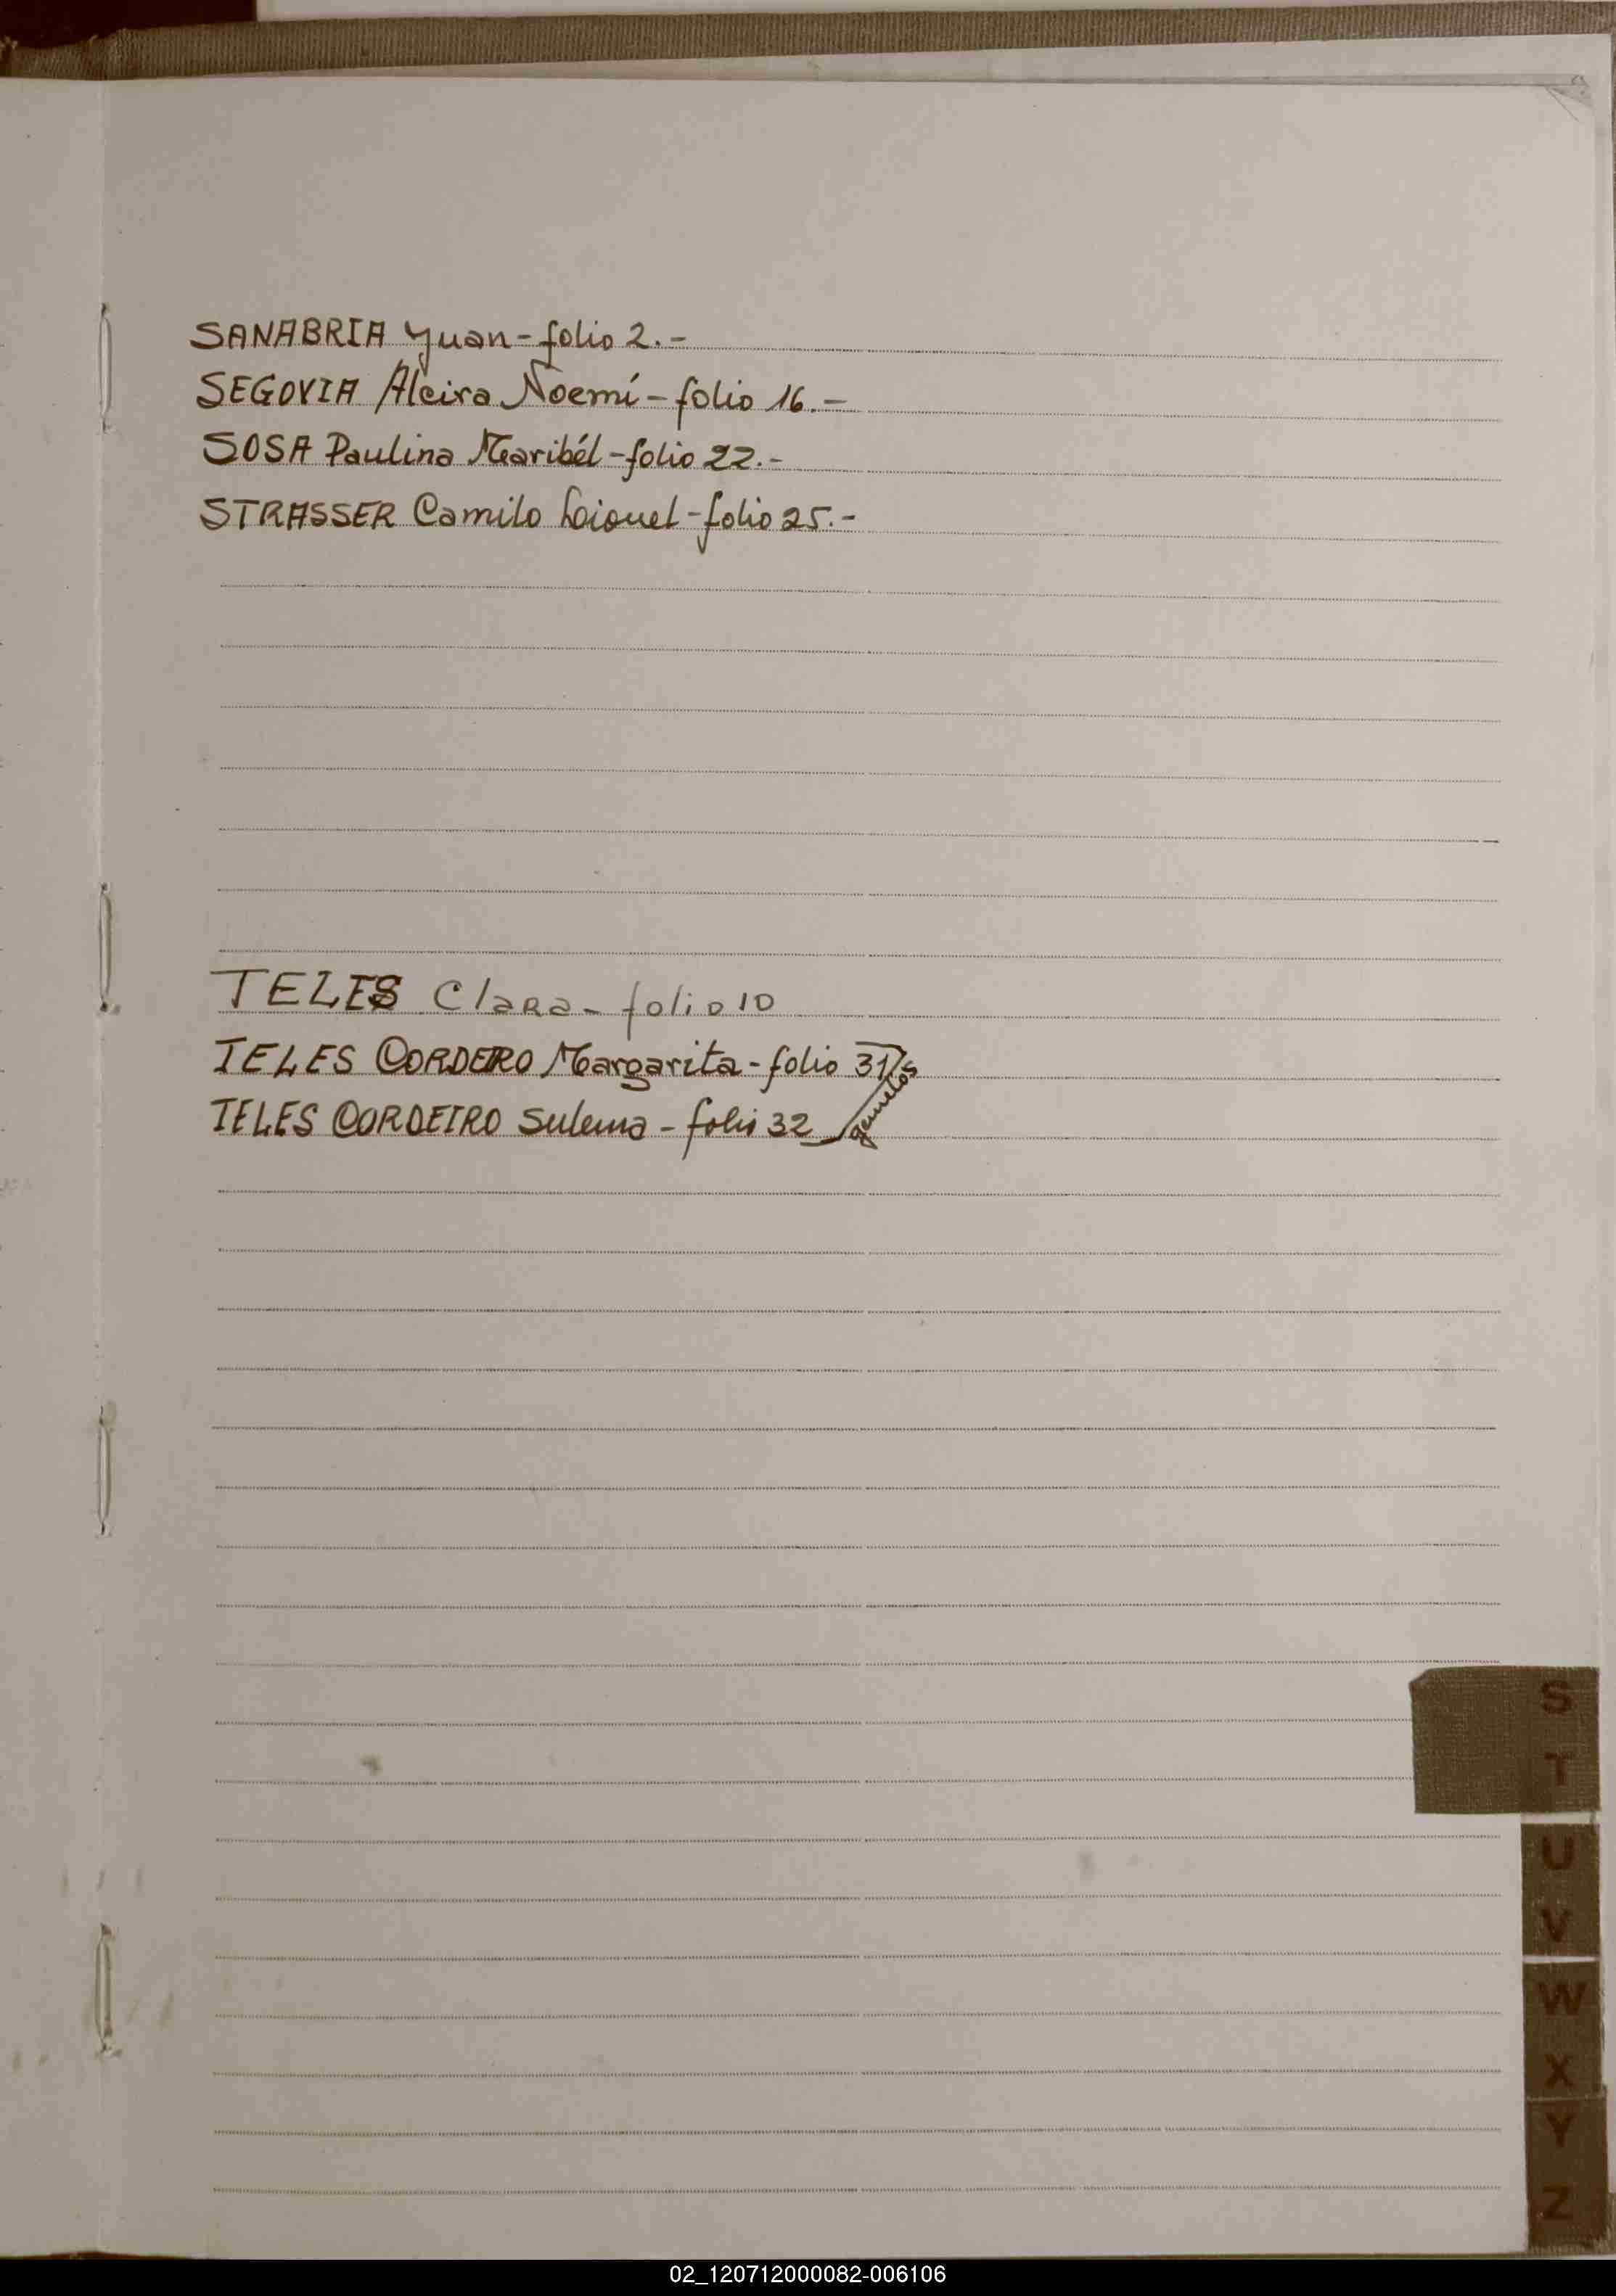 SANABRIA Juan - folio 2.-
SEGOVIA Alcira Noemí - folio 16.-
SOSA Paulina Maribél - folio 22.-
STRASSER Camilo Lionel - folio 25.-
TELES Clara - folio 10
TELES CORDERO Margarita - folio 31
gemelos
TELES CORDEIRO Sulema - folio 32
S
T
U
V
W
X
Y
Z
02_120712000082-006106